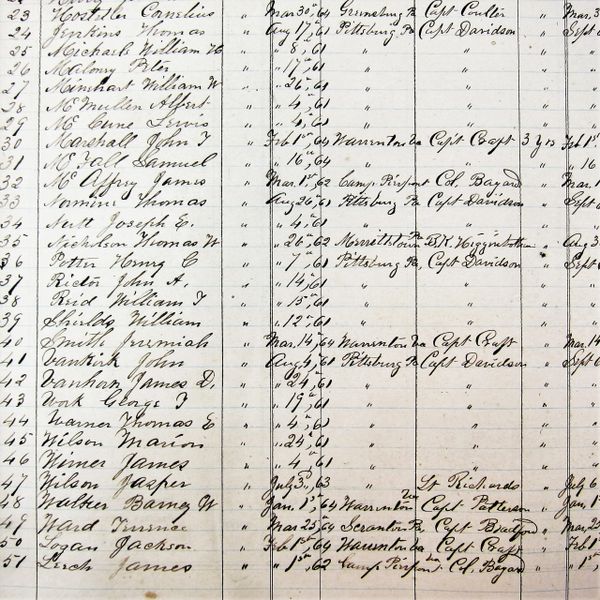 23 Hostetler Cornelius " Mar 30" 64 Greensburg Pa Capt Coulter " Mar. 3
24 Jenkins Thomas " Aug 17", 61 Pittsburg, Pa Capt Davidson " Sept 6
25 Michael William H " " 8, 61 " " "
26 Malony Peter " " 17, 61 " " "
27 Minehart William W " " 26, 61 " " "
28 McMullen Albert " " 4", 61 " " "
29 McCune Lewis " " 4", 61 " " "
30 Marshall John T " Feb 1st, 64 Warrenton Va Capt Craft 3 Yrs Feb 1st
31 McFall Samuel " " 16", 64 " " " " 16
32 McAffrey James " Mar. 1st, 62 Camp Pierpont Col. Bayard " Mar. 1
33 Thomas " Aug 26, 61 Pittsburg Pa Capt Davidson " Sept 6
34 Neff Joseph E. " " 4", 61 " " "
35 Nicholson Thomas W " " 26", 62 Pa B.K. Higginbotham " Aug 3
36 Potter Henry C " " 7", 61 Pittsburg Pa, Capt Davidson " Sept
37 Rictor John A. " " 14, 61 " " "
38 Reid William T " " 15", 61 " " "
39 Shields William " " 12", 61 " " "
40 Smith Jeremiah " Mar. 14, 64 Warrenton Va Capt Craft " Mar. 14
41 Vankirk John " Aug 4", 61 Pittsburg Pa Capt Davidson " Sept 6
42 Vanhorn James D. " " 24", 61 " " "
43 Work George T " " 19", 61 " " "
44 Warner Thomas E " " 4", 61 " " "
45 Wilson Marion " " 24", 61 " " "
46 Wimer James " " 4", 61 " " "
47 Wilson Jasper " July 3d, 63 " Lt Richards " July 6
48 Walter Barney W " Jan. 1st, 64 Warrenton Va Capt Patterson " Jan. 1
49 Ward Terrence " Mar 25, 64 Scranton Pa Capt Bradford " Mar. 25
50 Logan Jackson " Feb 1st, 64 Warrenton Va Capt Craft " Feb 1
51 Lerch James " " 1st, 62 Camp Pierpont Va Col. Bayard " " 1st